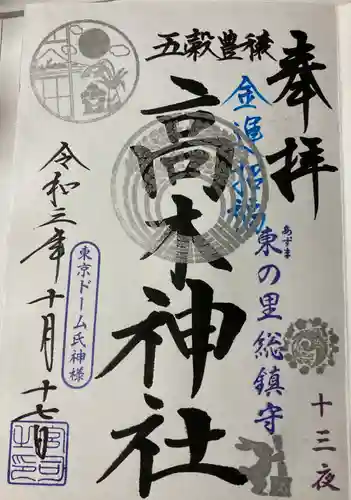 奉拝
五穀豊穣
金運招福
東の里総鎮守
あずま
十三夜
高木神社
令和三年十月十七日
東京ドーム氏神様